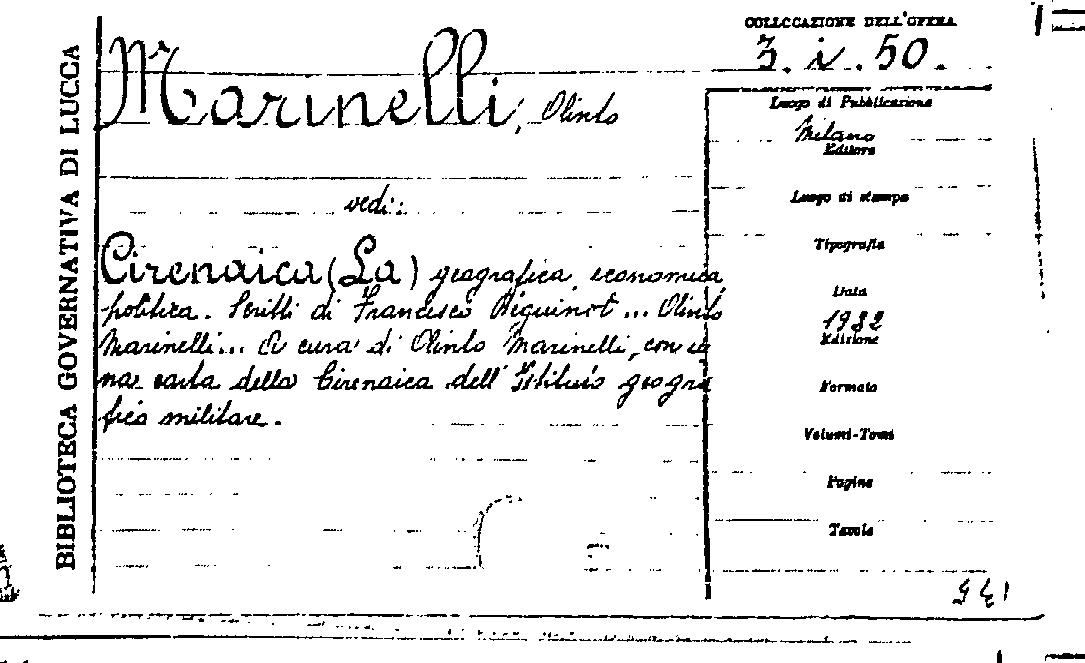 BIBLIOTECA GOVERNATIVA DI LUCCA
COLLOCAZIONE DELL'OPERA
3. i. 50.
Marinelli, Olinto
vedi:
Cirenaica (La) geografica, economica
politica. Scritti di Francesco Beguinot ... Olinto
Marinelli ... A cura di Olinto Marinelli, con
carta della Cirenaica dell'Istituto geogra
fico militare.
Luogo di Pubblicazione
Milano
Editore
Luogo di stampa
Tipografia
Data
1922
Edizione
Formato
Volumi-Tomi
Pagine
Tavole